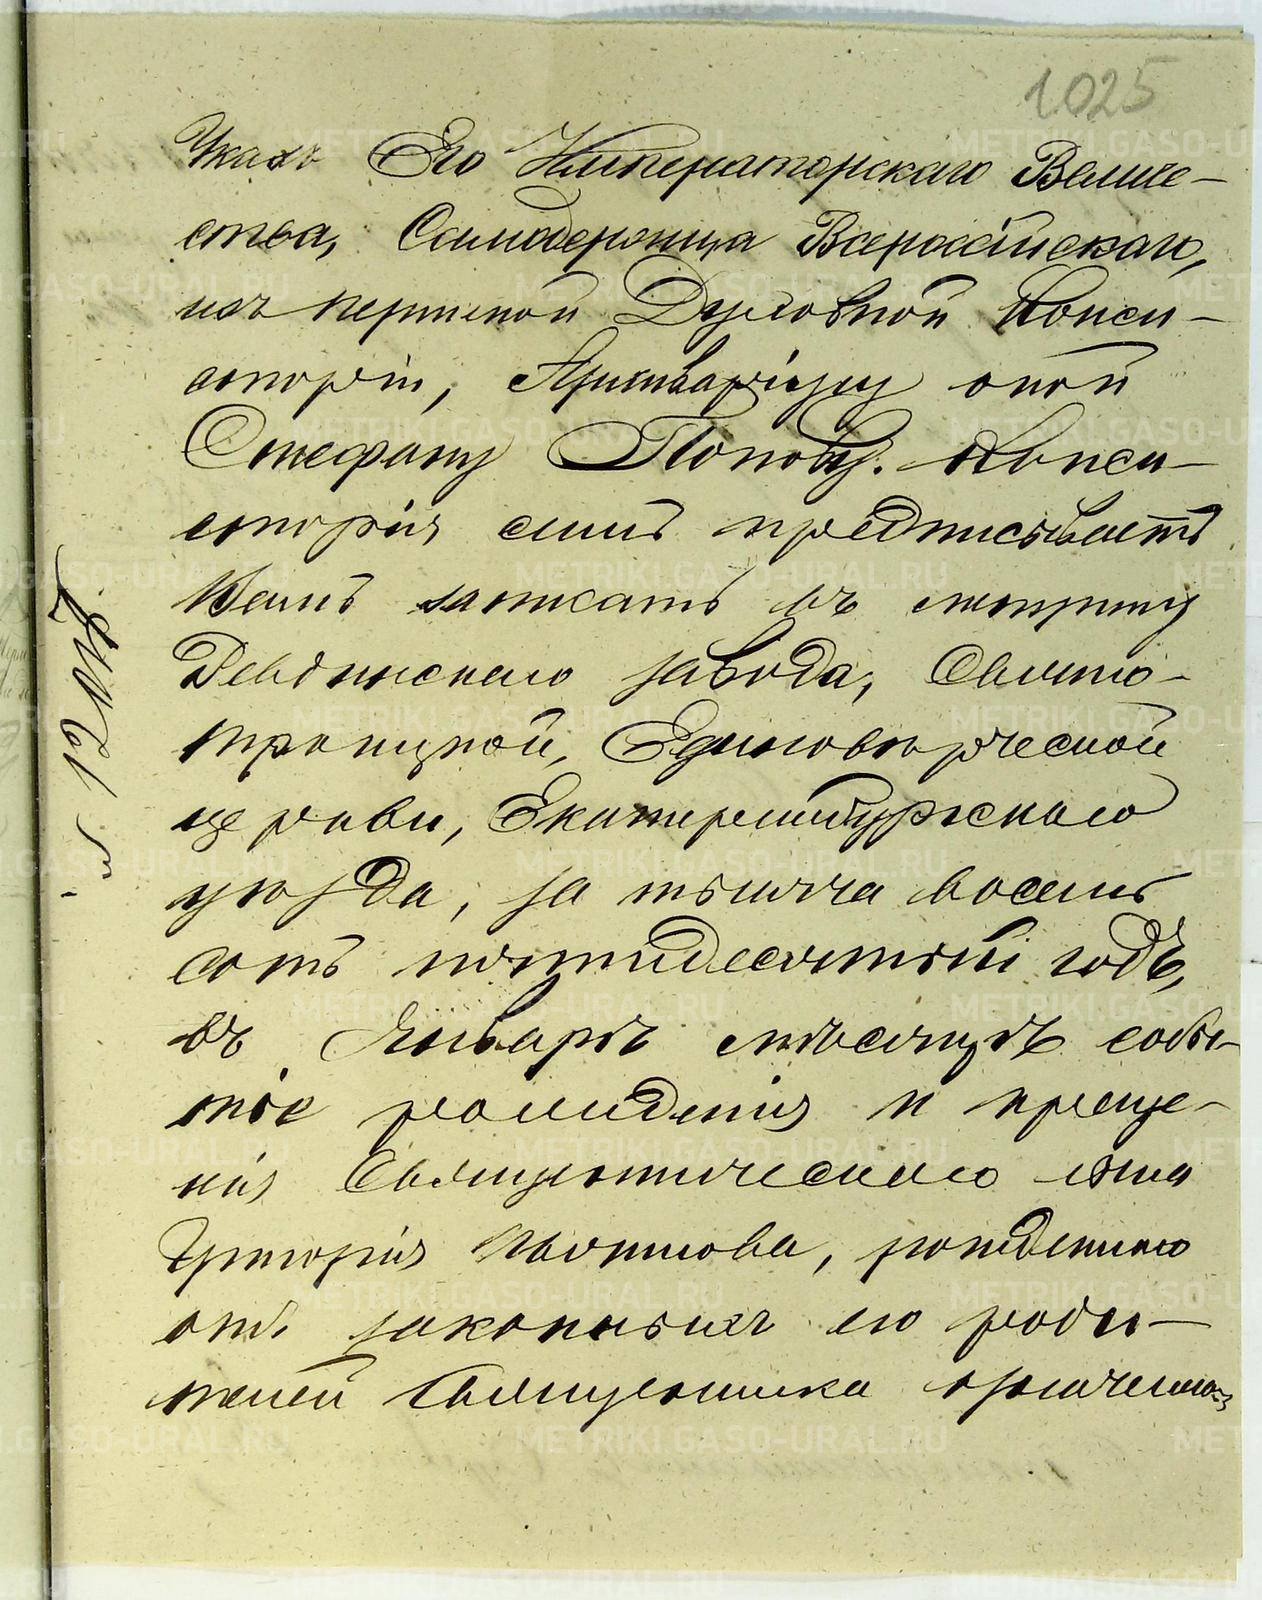 1025
Указъ Его Императорскаго Величе-
ства, Самодержца Всероссійскаго,
изъ Пермской Духовной Конси-
сторіи, Архиваріусу оной
Стефану Попову. Конси-
сторія симъ предписываетъ
Вамъ записать въ метрику
Ревдинскаго завода, Свято-
троицкой, Единовѣрческой
церкви, Екатеринбургскаго
уѣзда, за тысяча восемь
сотъ пятидесятый годъ,
въ Январѣ мѣсяцѣ собы-
тіе рожденія и креще-
нія Священническаго сына
Григорія, рожденнаго
отъ законныхъ его роди-
телей Священника означенной